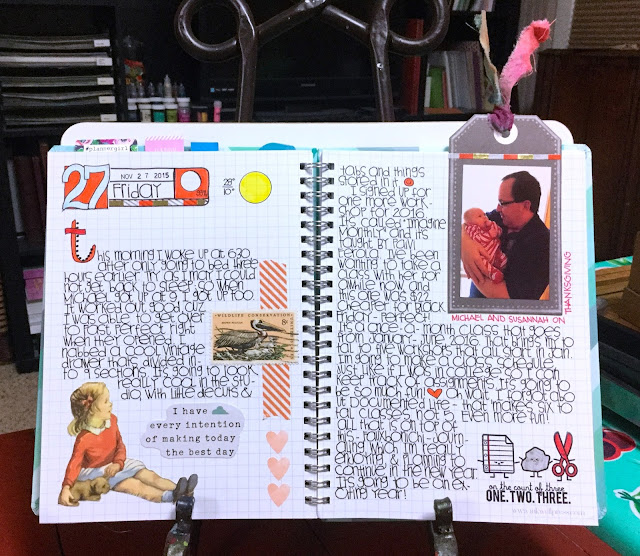 #plannergirl
27
NOV 27 2015
Friday
28°
10°
This morning I woke up at 6:30
after only going to bed three
hours earlier. I could
not get back to sleep, so when
Michael got up at 9, I got up too.
It worked out good
I was to get over
to Past Perfect right
when they opened. I
nabbed a cool vintage
drawer. It's divided in-
to 9 sections. It's going to look
really cool in the stu-
dio, with little diecuts &
WILDLIFE CONSERVATION
8c
I have
every intention
of making today
the best day
tabs and things
stored in it
I signed up for
one more work-
shop for 2016.
It's called Imagine
Monthly and it's
taught by
I've been
wanting to take a
class with her for
awhile now and
this one was \$22
off for Black
Friday.
month class that goes
from January - June 2016. That brings me to
to five workshops that all start in Jan.
I'm going to make a schedule
just like I was in college so I can
keep track of assignments. It's going to
be so much fun! Oh wait, I forgot also
of Documented Life - that makes six to
tal classes for 2016 - even more fun!
all that is on top of
this - Faulkbonkin journ-
aling which I'm really
enjoying & planning to
continue in the new year.
It's going to be an ex-
citing year!
MICHAEL AND SUSANNAH ON
THANKSGIVING
on the count of three
ONE. TWO. THREE.
www.inkwellpress.com